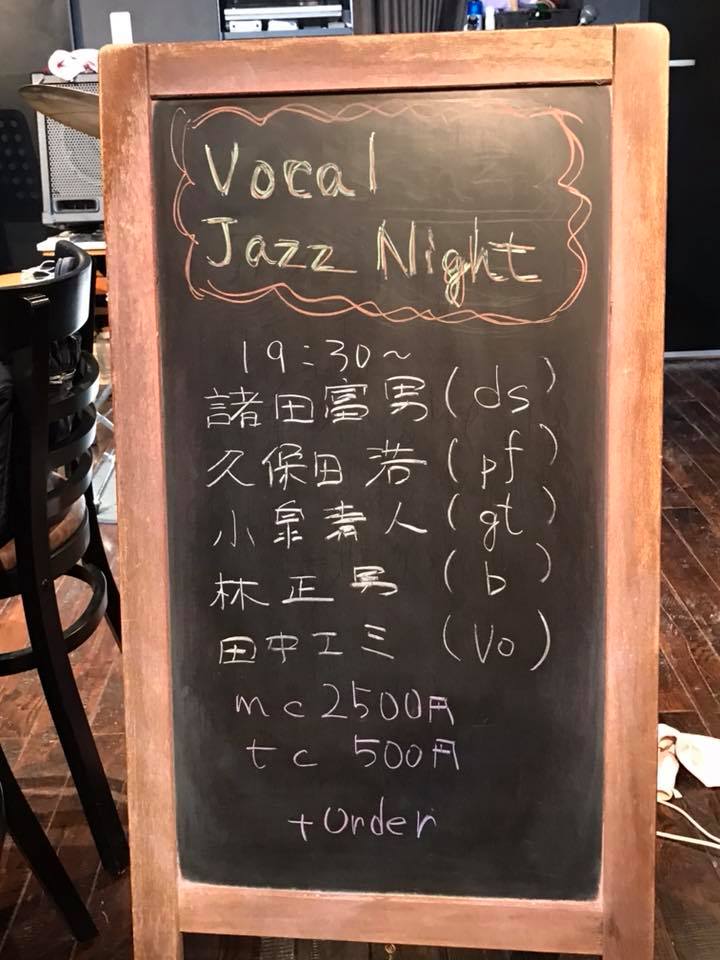 Vocal
Jazz Night
19:30~
諸田富男(ds)
久保田浩(pf)
小泉清人(gt)
林正男(b)
田中エミ(Vo)
mc2500円
tc 500円
+Order